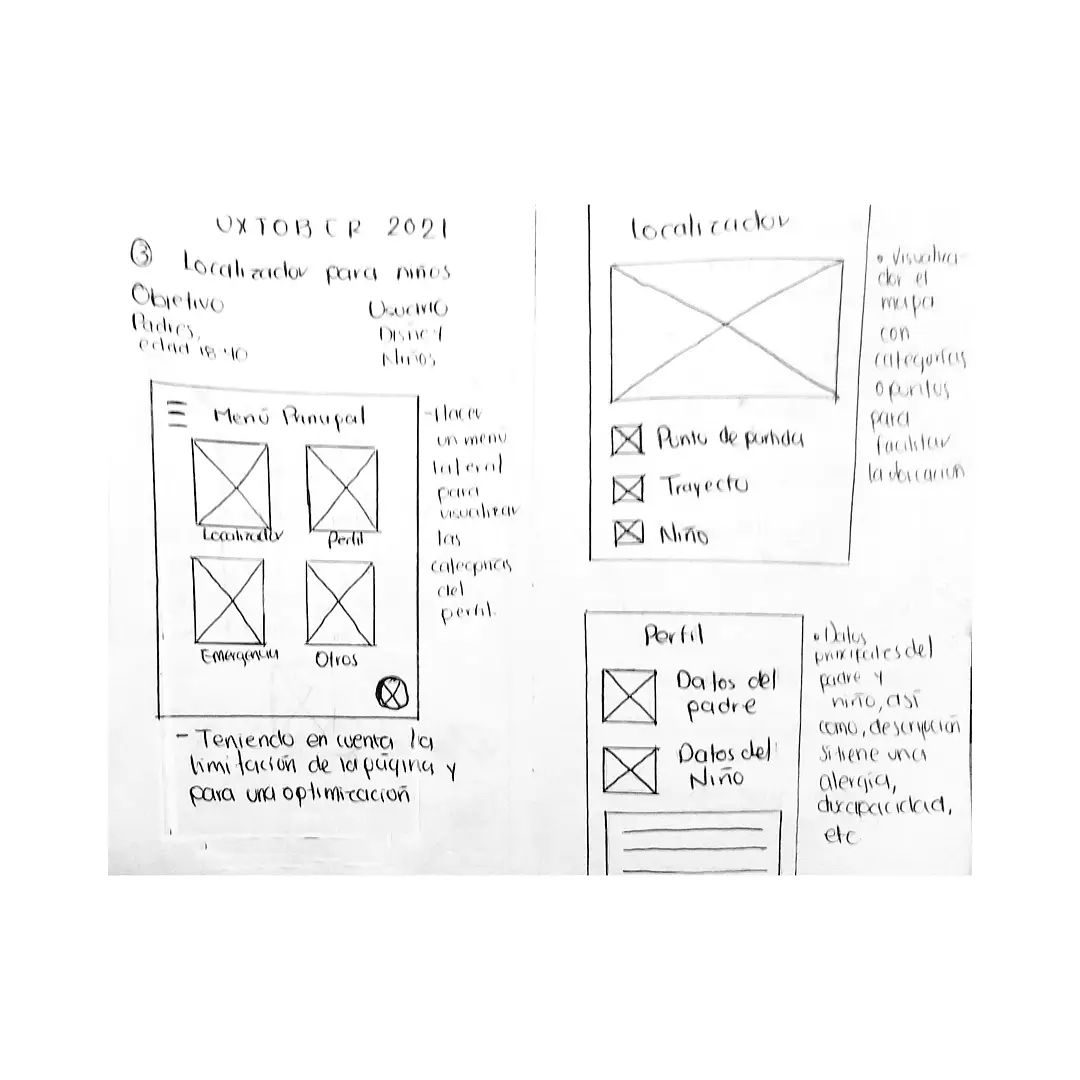 UXTOBER 2021
③ Localizador para niños
Objetivo
Padres,
edad 18-40
Usuario
Disney
Niños
Menú Principal
Localizador
Perfil
Emergencia
Otros
-Hacer
un menú
lateral
para
visualizar
las
categorias
del
perfil.
- Teniendo en cuenta la
limitación de la página y
para una optimización
Localizador
Punto de partida
Trayecto
Niño
• Visualiza-
dor el
mapa
con
categorías
o puntos
para
facilitar
la ubicación
Perfil
Datos del
padre
Datos del
Niño
• Datos
principales del
padre y
niño, así
como, descripción
si tiene una
alergia,
discapacidad,
etc